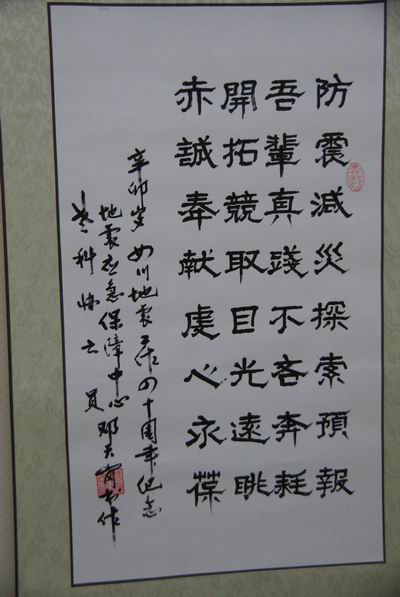 防震減災探索預報
吾輩真踐不吝奔耗
開拓競取目光遠眺
赤誠奉献虔心永葆
辛卯岁 四川地震工作四十周年纪念
地震应急保障中心邓天
老科协会员